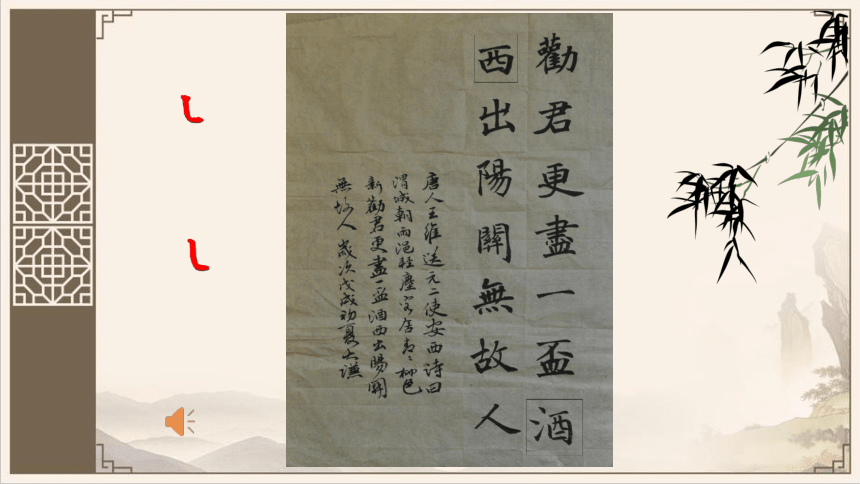 勸君更盡一盃酒
西出陽關無故人
唐人王維送元二使安西詩曰
渭城朝雨浥輕塵客舍青々柳色
新勸君更盡一盃酒西出陽關
無故人 歲次戊戌初夏